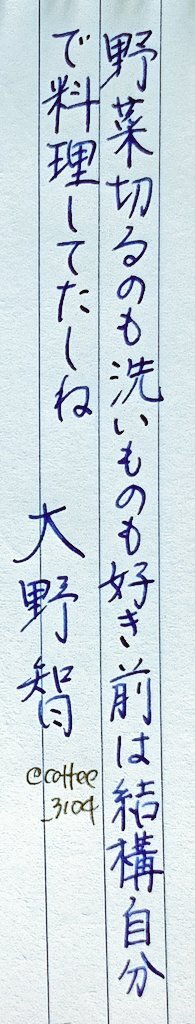 野菜切るのも洗いものも好き前は結構自分
で料理してたしね
大野智
@coffee
_3104